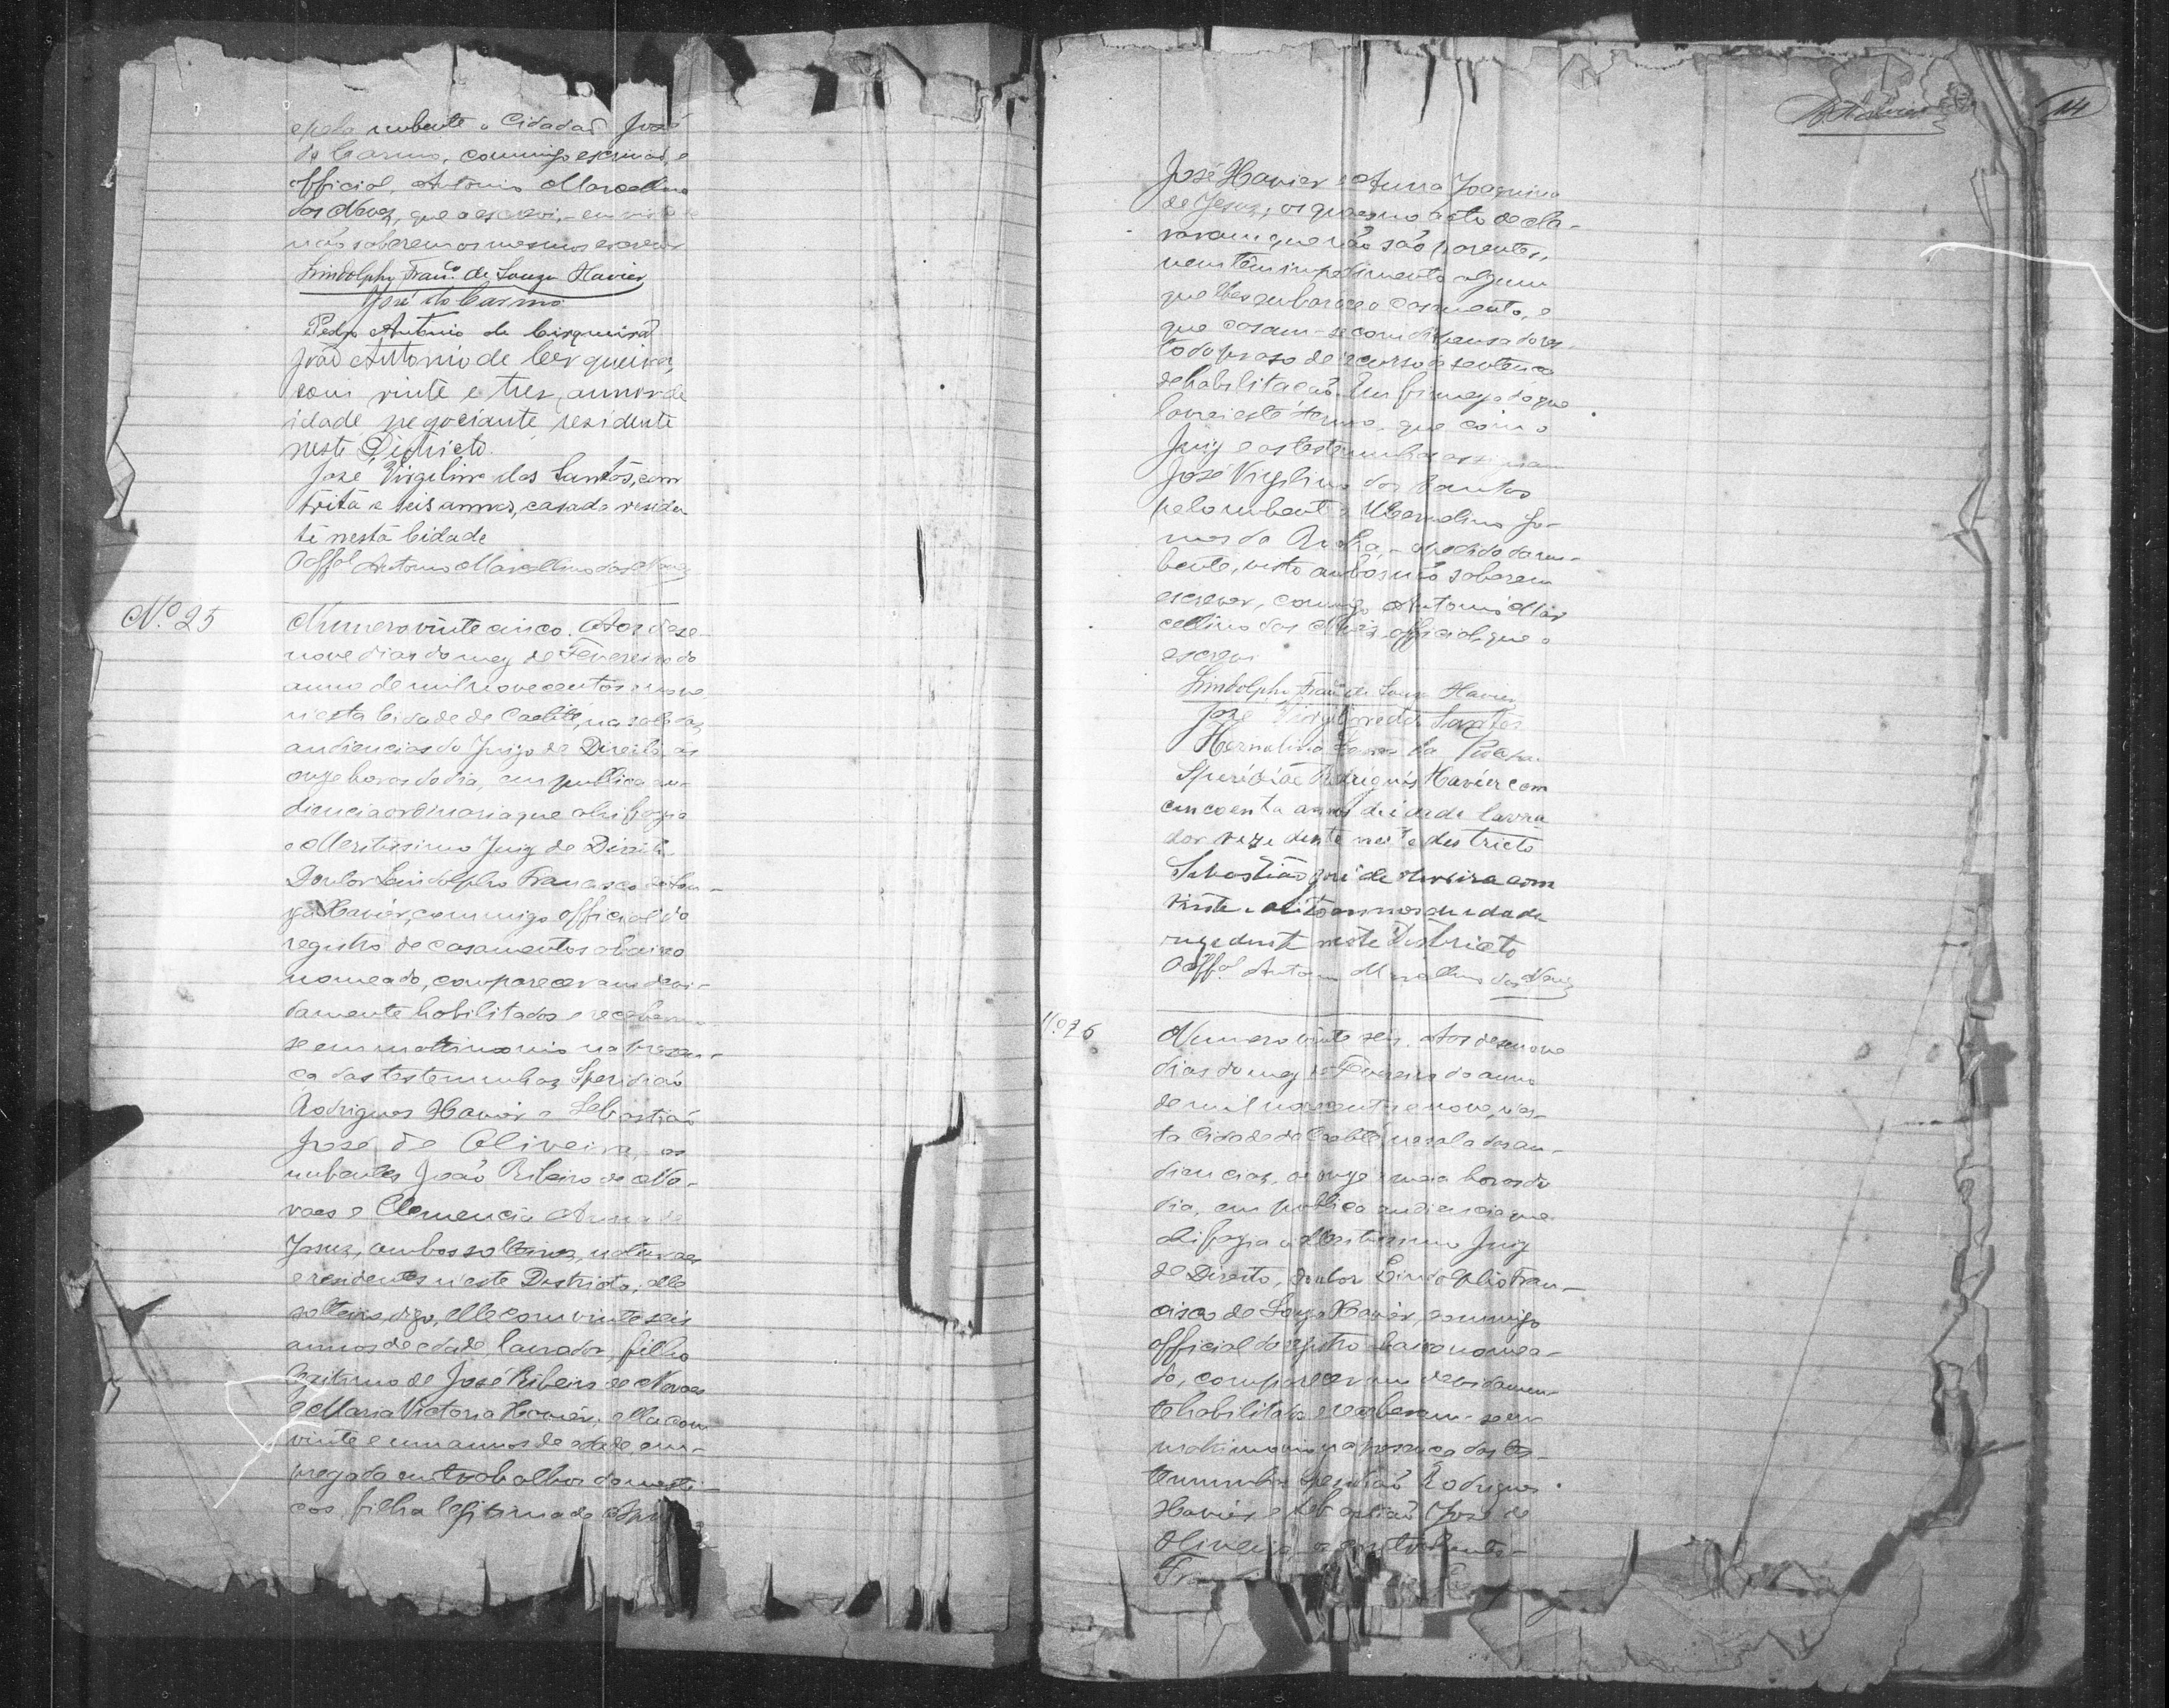 e pela nubente o Cidadão José
do Carmo, commigo escrivão, e
official, Antonio Marcellino
das Neves, que o escrevi, em vista de
não saberem os mesmos escrever
Lindolpho Fran.co de Souza Xavier
José do Carmo
Pedro Antonio de Cirqueira
João Antonio de Cerqueira,
com vinte e tres annos de
idade negociante residente
neste Districto.
José Virgelino dos Santos, com
trita e seis annos, casado residen
te nesta Cidade
O off.al Antonio Marcellino das Neves
Nº 25
Numero vinte cinco. Aos dese-
nove dias do mez de Fevereiro do
anno de mil novecentos e nove
n'esta Cidade de Caetité, na sala das
audiencias do Juizo de Direito, as
onze horas do dia, em publica au-
diencia ordinaria que ahi fazia
o Meritissimo Juiz de Direito
Doutor Lindolpho Francisco de Sou-
za Xavier, commigo official do
registro de casamentos abaixo
nomeado, compareceram devi-
damente habilitados e receberam
se em mattrimonio na presen-
ça das testemunhas Speridião
Rodrigues Xavier e Sebastião
José de Oliveira, os
nubentes João Ribeiro de No-
vaes e Clemencia Anna de
Jesus, ambos solteiros, naturaes
e residentes n'este Districto, elle
solteiro, digo, elle com vinte seis
annos de edade, lavrador, filho
legitimo de José Ribeiro de Novaes
e Maria Victoria Xavier, ella com
vinte e um annos de edade, em-
pregada em trabalhos domesti-
cos, filha legitima de
14
José Xavier e Anna Joaquina
de Jesus, os quaes no acto decla-
raram que não são parentes,
nem têm impedimento algum
que lhes embarace o casamento, e
que casam-se com dispensa do res
to do praso de recurso da sentença
de habilitação. Em firmeza do que
lavrei este termo, que com o
Juiz e as testemunhas assignam
José Virgelino dos Santos
pelo nubente e Hermelino Go-
mes da Rocha, a pedido da nu-
bente, visto ambos não saberem
escrever, commigo Antonio Mar
cellino das Neves, official, que o
escrevi
Lindolpho Fran.co de Souza Xavier
José Virgelino dos Santos
Hermelino Gomes da Rocha
Speridião Rodrigues Xavier com
cincoenta annos de idade lavra
dor rezidente neste destricto
Sebastião José de Oliveira com
vinte e oito annos de idade
rezedente neste Districto
O off.al Antonio Marcellino das Neves
Nº 26
Numero vinte seis. Aos desenove
dias do mez de Fevereiro do anno
de mil novecentos e nove, n'es-
ta Cidade de Caetité, na sala das au-
diencias, as onze e meia horas do
dia, em publica audiencia que
ahi fazia o Meritissimo Juiz
de Direito, Doutor Lindolpho Fran-
cisco de Souza Xavier, commigo
official do registro abaixo nomea-
do, compareceram devidamen-
te habilitados e receberam-se em
matrimonio na presença das tes-
temunhas Speridião Rodrigues
Xavier e Sebastião José de
Oliveira, os